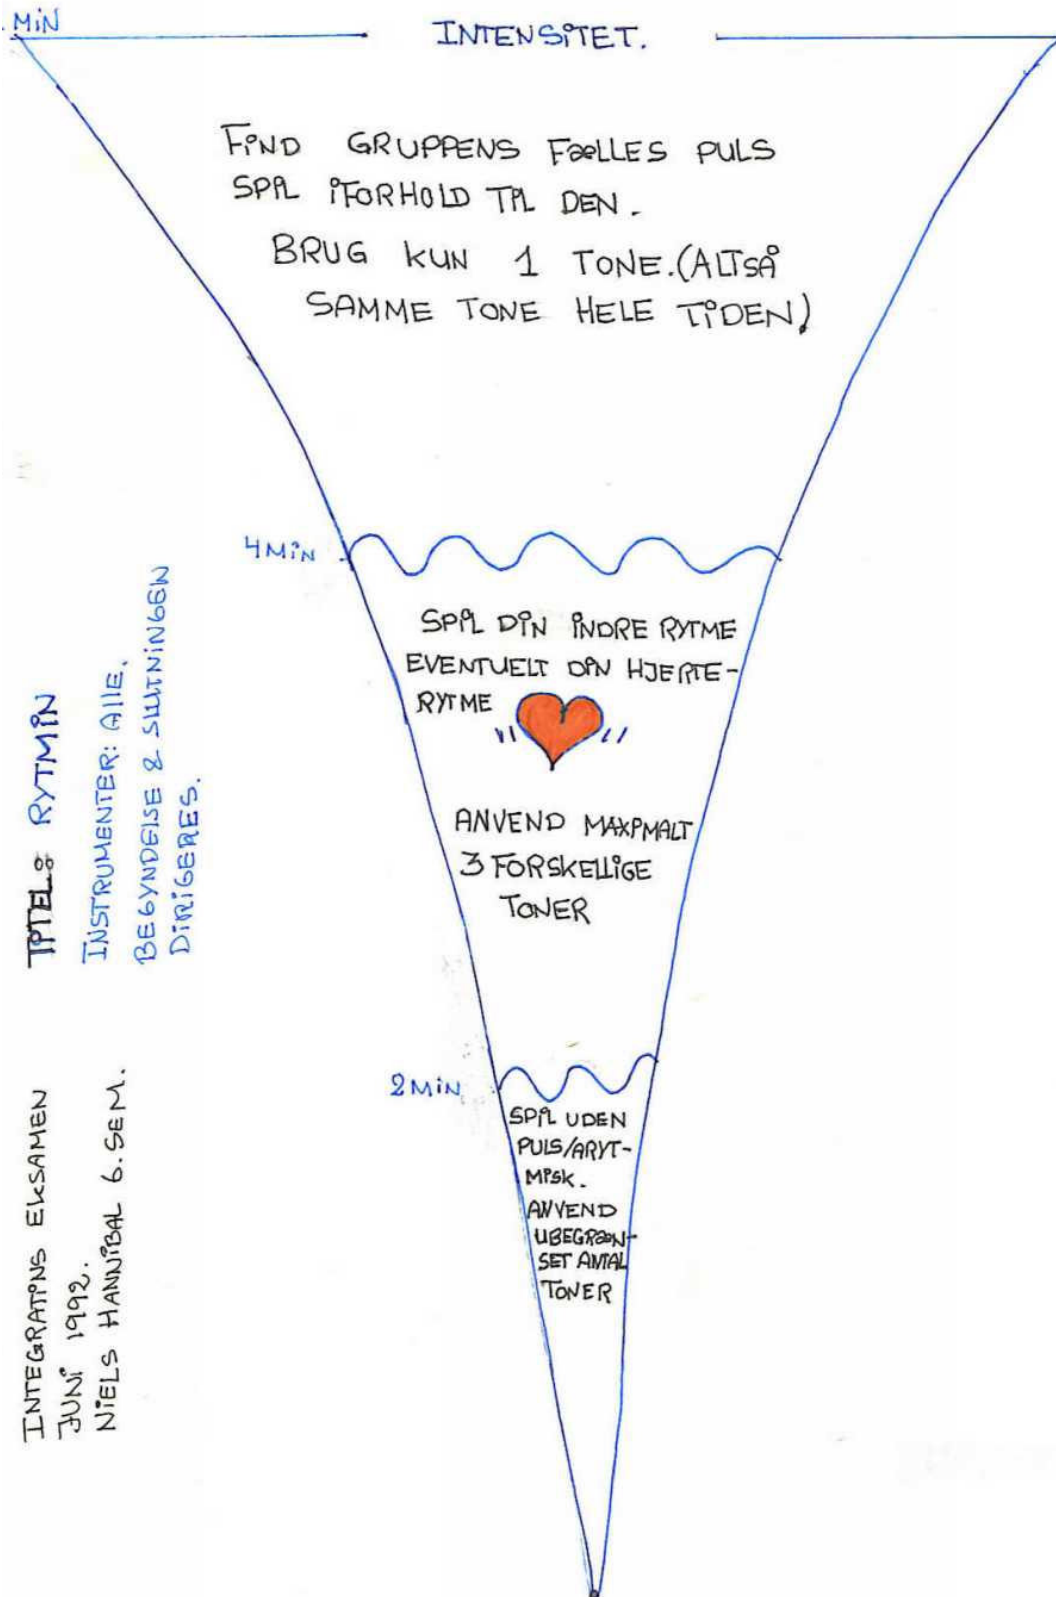 MIN
INTENSITET.
FIND GRUPPENS FÆLLES PULS
SPIL IFORHOLD TIL DEN.
BRUG KUN 1 TONE. (ALTSÅ
SAMME TONE HELE TIDEN)
4 MIN
SPIL DIN INDRE RYTME
EVENTUELT DIN HJERTE-
RYTME
ANVEND MAXIMALT
3 FORSKELLIGE
TONER
2 MIN
SPIL UDEN
PULS/ARYT-
MISK.
ANVEND
UBEGRÆN-
SET ANTAL
TONER
TITEL: RYTMIN
INSTRUMENTER: ALLE.
BEGYNDELSE & SLUTNINGEN
DIRIGERES.
INTEGRATIONS EKSAMEN
JUNI 1992.
NIELS HANNIBAL 6. SEM.